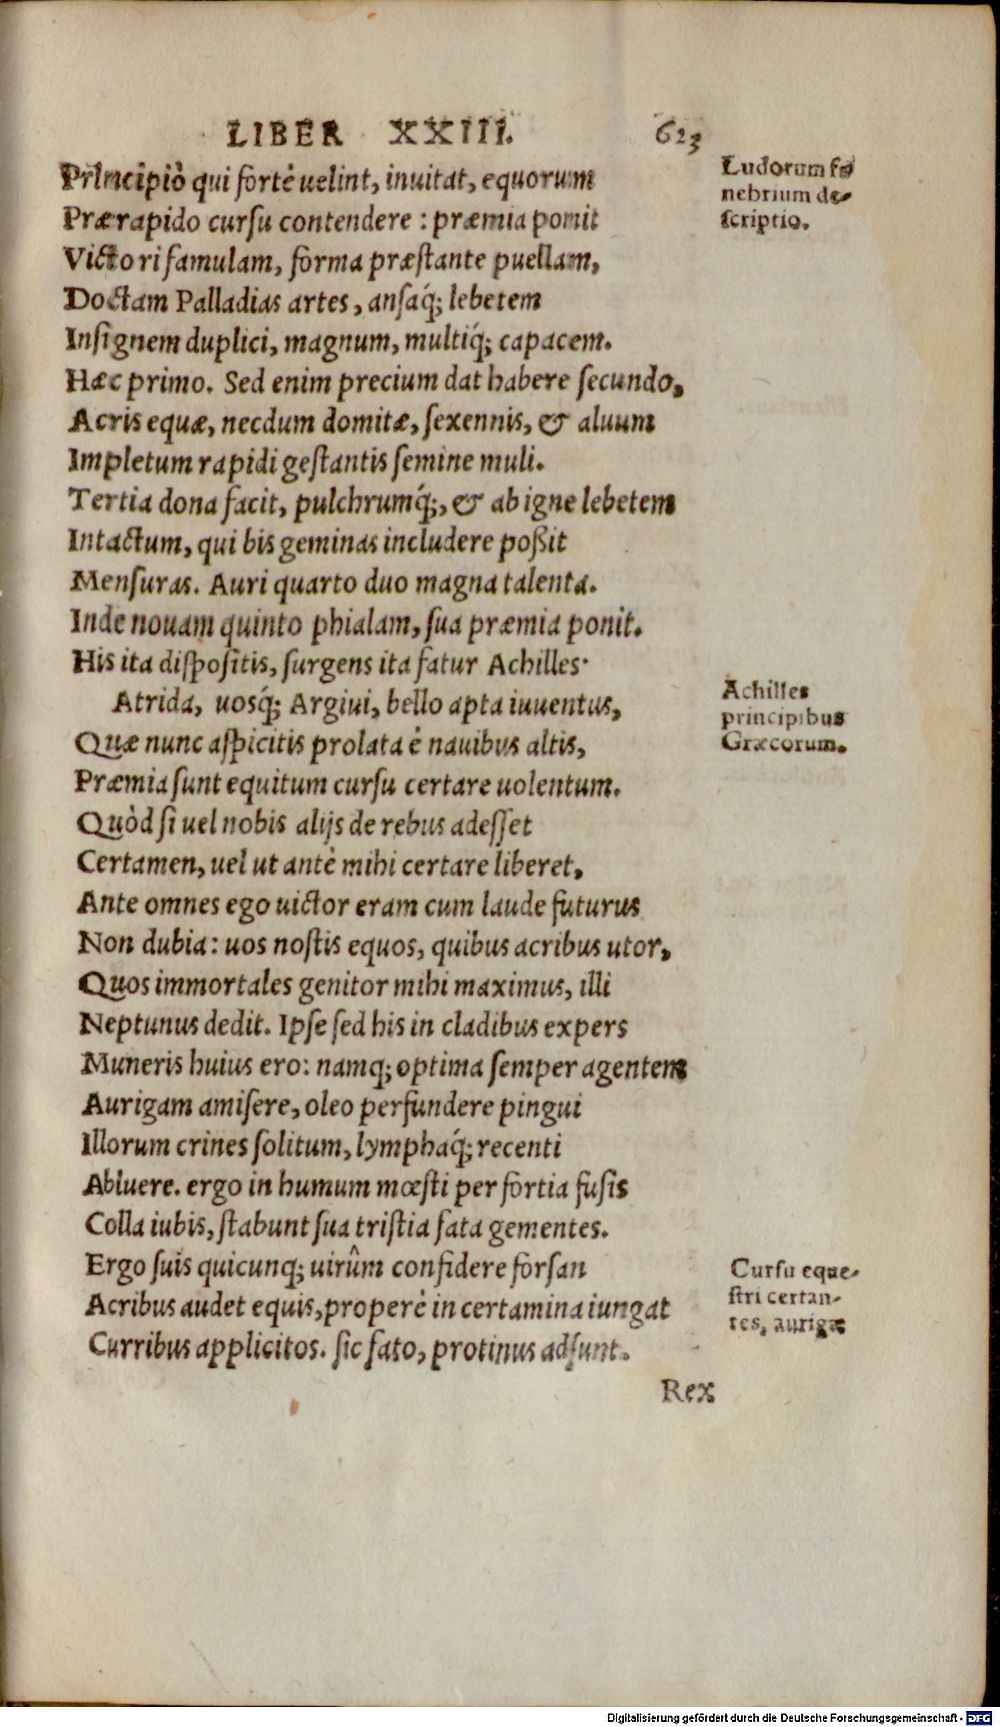 LIBER XXIII. 623
Principiò qui fortè uelint, inuitat, equorum
Prærapido cursu contendere : præmia ponit
Victori famulam, forma præstante puellam,
Doctam Palladias artes, ansaq́; lebetem
Insignem duplici, magnum, multiq́; capacem.
Hæc primo. Sed enim precium dat habere secundo,
Acris equæ, necdum domitæ, sexennis, & aluum
Impletum rapidi gestantis semine muli.
Tertia dona facit, pulchrumq́;, & ab igne lebetem
Intactum, qui bis geminas includere poßit
Mensuras. Auri quarto duo magna talenta.
Inde nouam quinto phialam, sua præmia ponit.
His ita dispositis, surgens ita fatur Achilles·
Atrida, uosq́; Argiui, bello apta iuuentus,
Quæ nunc aspicitis prolata è nauibus altis,
Præmia sunt equitum cursu certare uolentum.
Quòd si uel nobis alijs de rebus adesset
Certamen, uel ut antè mihi certare liberet,
Ante omnes ego uictor eram cum laude futurus
Non dubia: uos nostis equos, quibus acribus utor,
Quos immortales genitor mihi maximus, illi
Neptunus dedit. Ipse sed his in cladibus expers
Muneris huius ero: namq; optima semper agentem
Aurigam amisere, oleo perfundere pingui
Illorum crines solitum, lymphaq́; recenti
Abluere. ergo in humum mœsti per fortia fusis
Colla iubis, stabunt sua tristia fata gementes.
Ergo suis quicunq; uirûm confidere forsan
Acribus audet equis, properè in certamina iungat
Curribus applicitos. sic fato, protinus adsunt.
Rex
Ludorum fu
nebrium de-
scriptio.
Achilles
principibus
Græcorum.
Cursu eque-
stri certan-
tes, aurigæ
Digitalisierung gefördert durch die Deutsche Forschungsgemeinschaft - DFG